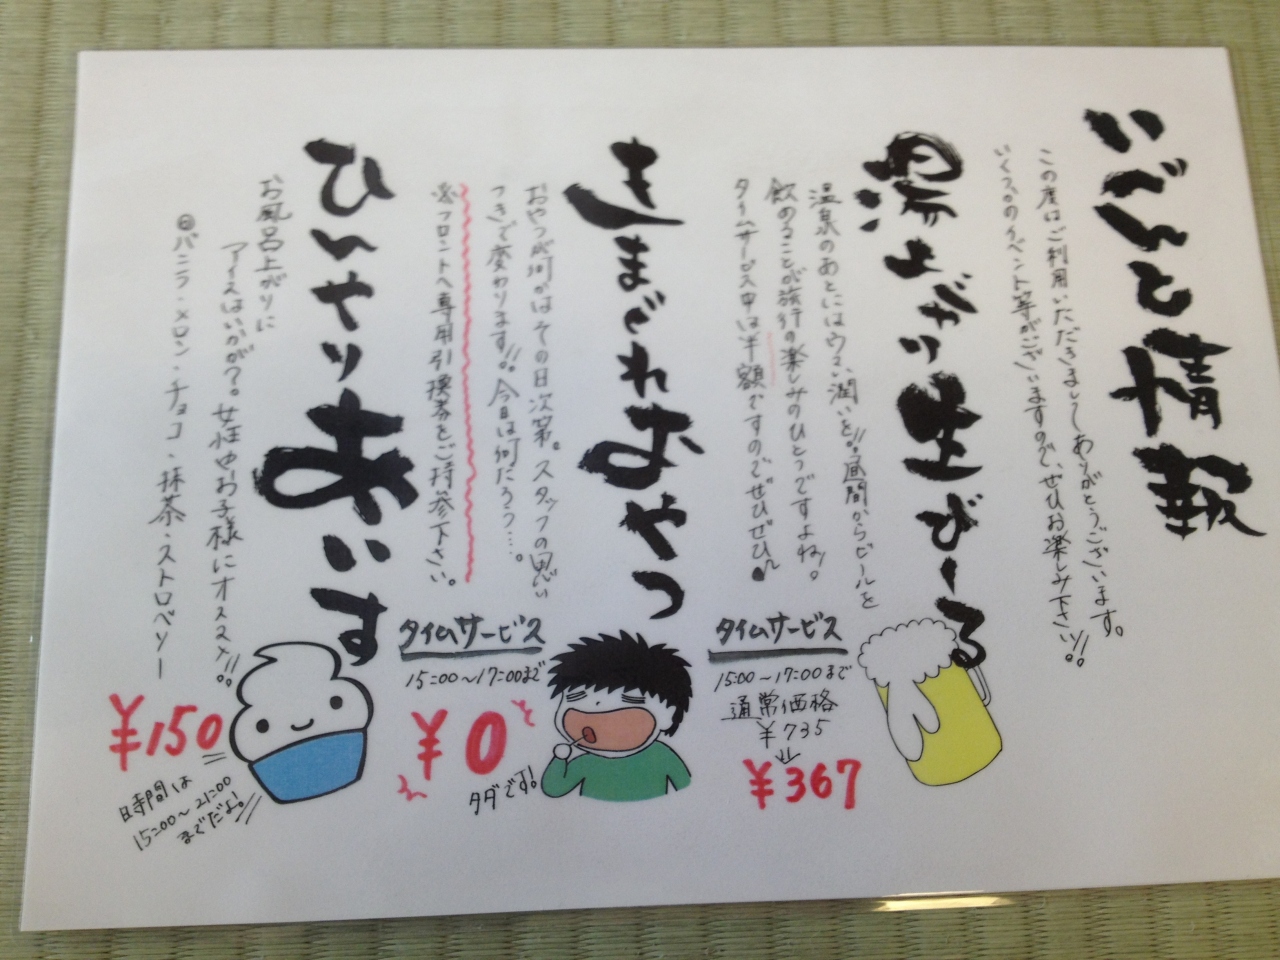 いべんと情報
この度はご利用いただきましてありがとうございます。
いくつかのイベント等がございますので、ぜひお楽しみ下さい!!
湯上がり生びーる
温泉のあとにはウマい潤いを!!昼間からビールを
飲めることが旅行の楽しみのひとつですよね♪
タイムサービス中は半額ですのでぜひぜひ♪
タイムサービス
15:00～17:00まで
通常価格
¥735
¥367
きまぐれおやつ
おやつが何かはその日次第。スタッフの思い
つきで変わります!!今日は何だろう….。
※フロントへ専用引換券をご持参下さい。
タイムサービス
15:00～17:00まで
¥0
タダです!
ひんやりあいす
お風呂上がりに
アイスはいかが?。女性やお子様にオススメ!!
バニラ・メロン・チョコ・抹茶・ストロベリー
¥150
時間は
15:00～21:00
までだよ!